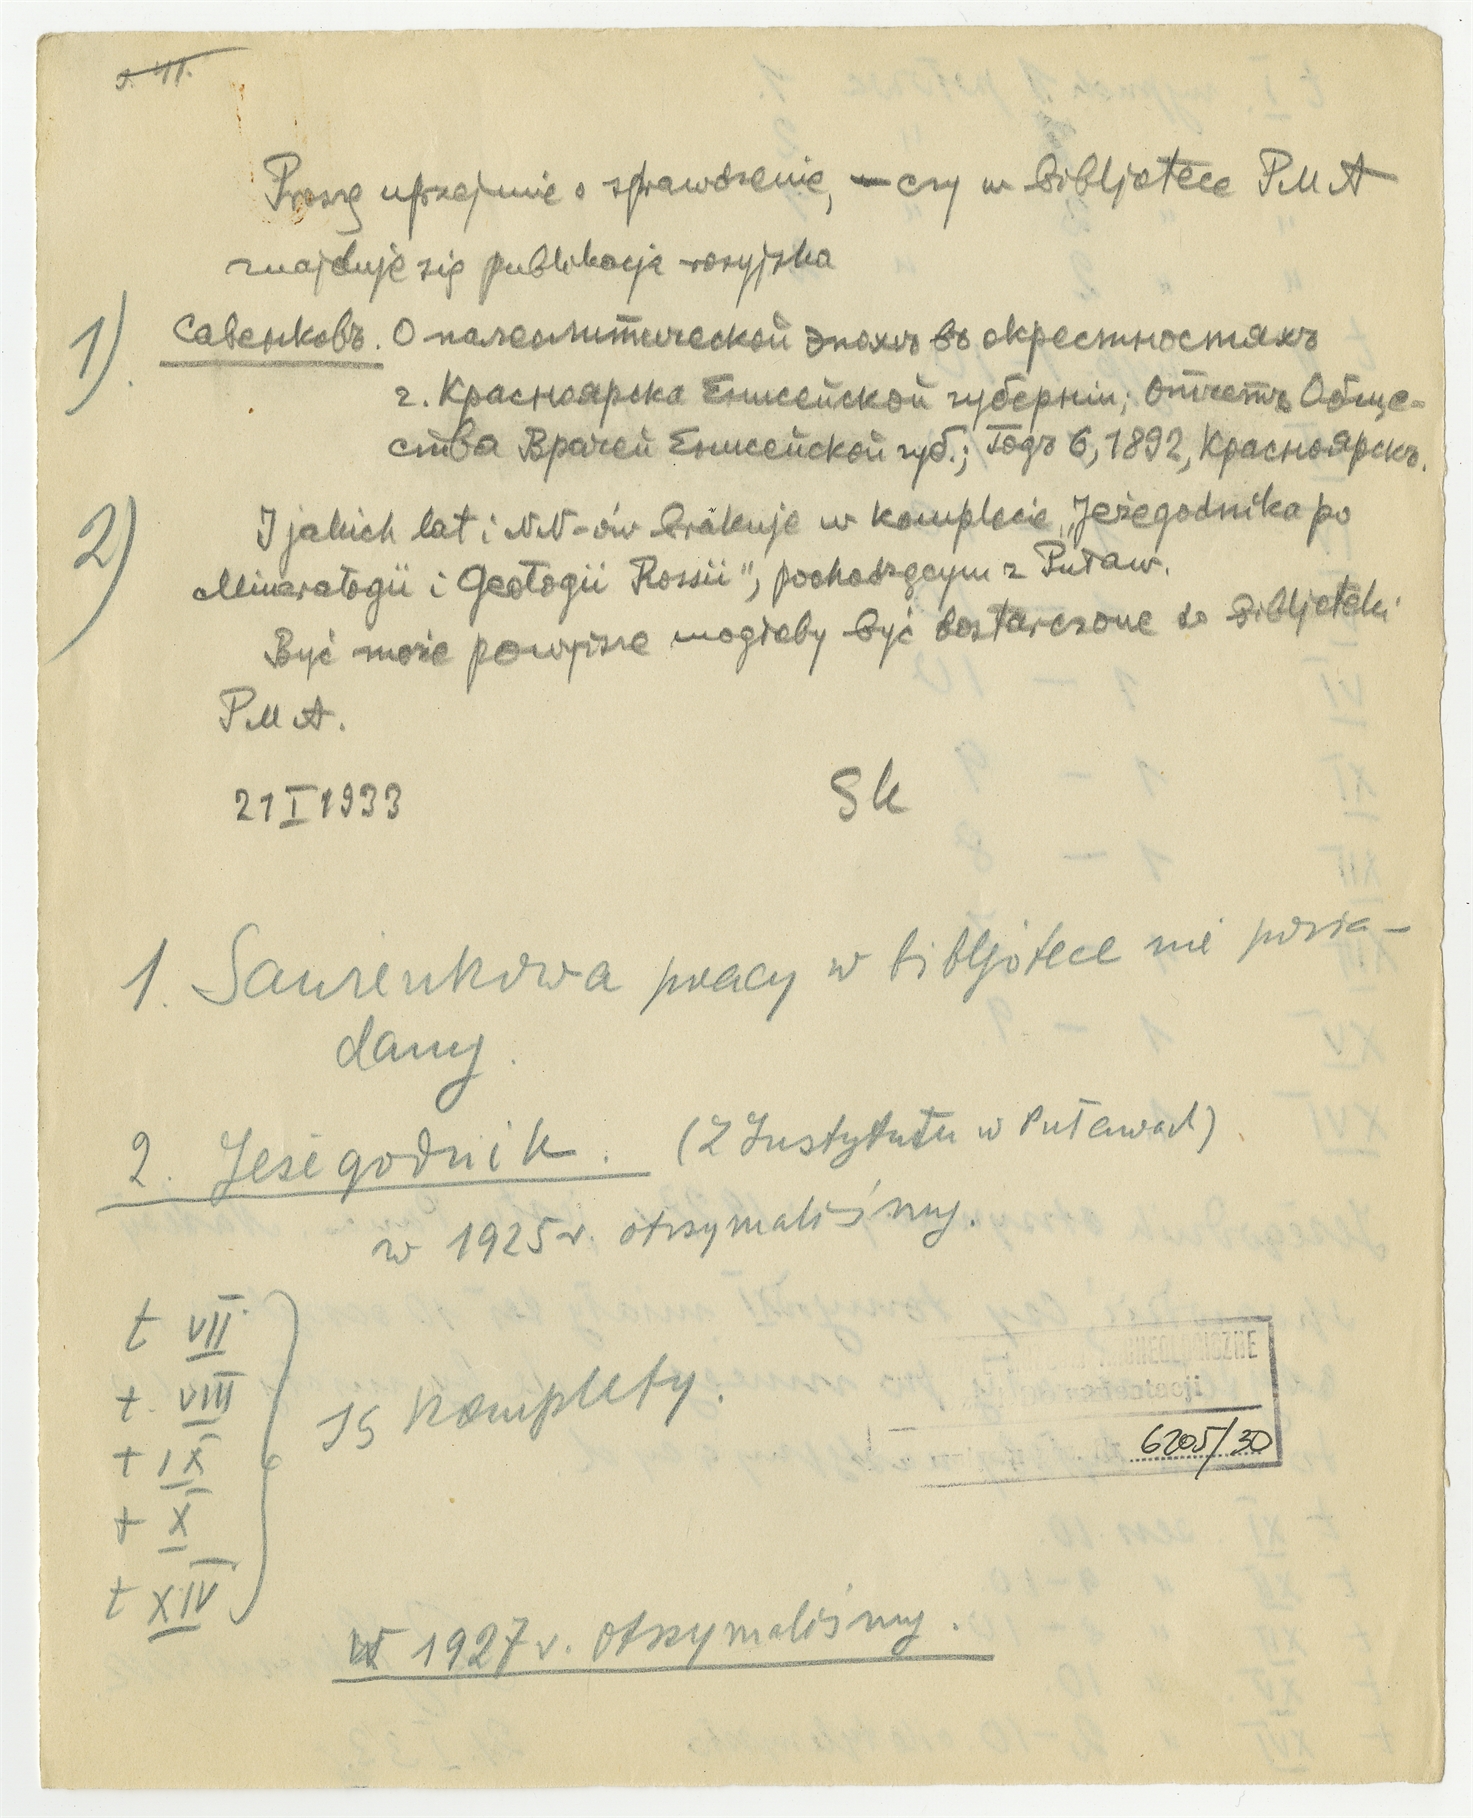 Proszę uprzejmie o sprawdzenie, – czy w bibljotece PMA
znajduje się publikacja rosyjska
1). Савенковъ. О палеолитической эпохѣ въ окрестностяхъ
г. Красноярска Енисейской губерніи; Отчетъ Обще-
ства Врачей Енисейской губ.; Годъ 6, 1892, Красноярскъ.
2) I jakich lat i NN-ów brakuje w komplecie „Jeżegodnika po
Minerałogii i Geołogii Rossii", pochodzącym z Puław.
Być może powyższe mogłeby być dostarczone do Bibljoteki
PMA.
21 I 1933
Sk
1. Sawienkowa pracy w bibljotece nie posia-
damy.
2. Jeżegodnik. (Z Instytutu w Puławach).
w 1925 r. otrzymaliśmy.
t VII
t. VIII
t IX
t X
t XIV
są komplety.
ARCHEOLOGICZNE
6205/30
W 1927 r. otrzymaliśmy.